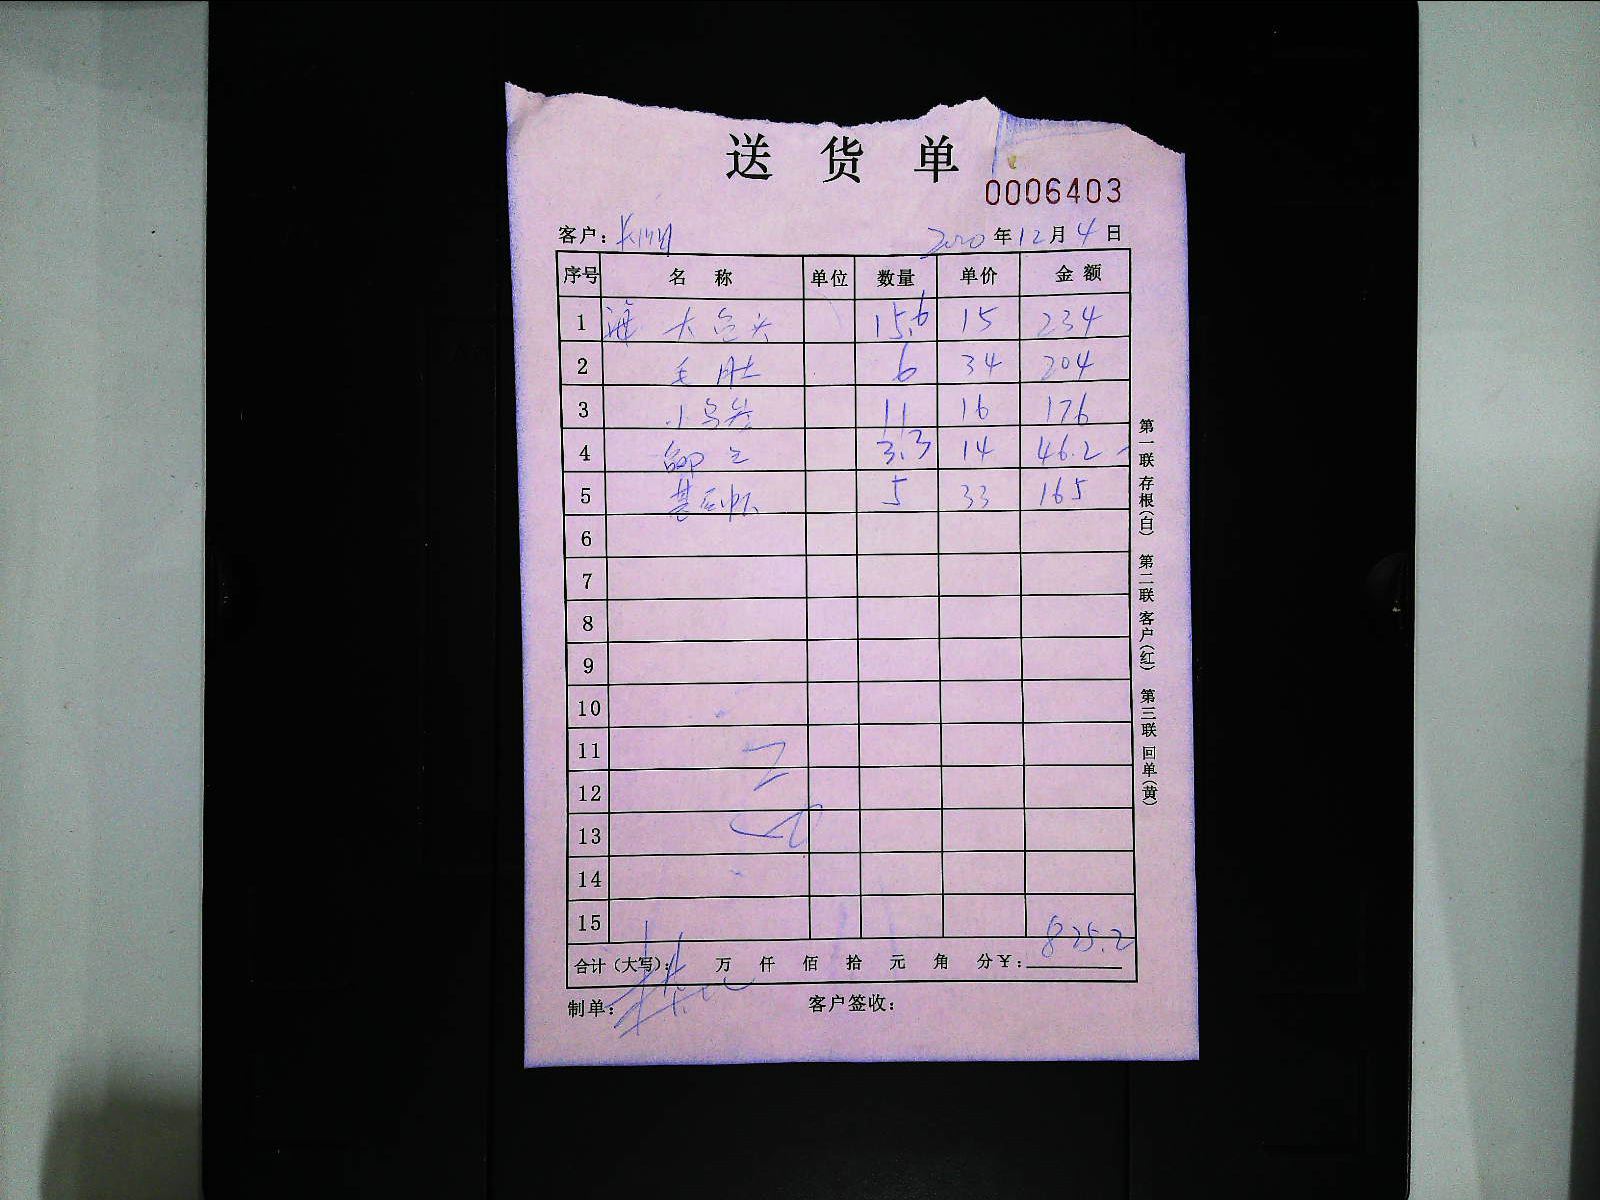 送 货 单
0006403
客户： 2020 年 12 月 4 日
序号 名 称 单位 数量 单价 金额
1 大鱼头 15.6 15 234
2 毛肚 6 34 204
3 11 16 176
4 3.3 14 46.2
5 5 33 165
6
7
8
9
10
11
12
13
14
15
合计（大写）： 万 仟 佰 拾 元 角 分￥：825.2
制单： 客户签收：
第一联 存根（白） 第二联 客户（红） 第三联 回单（黄）